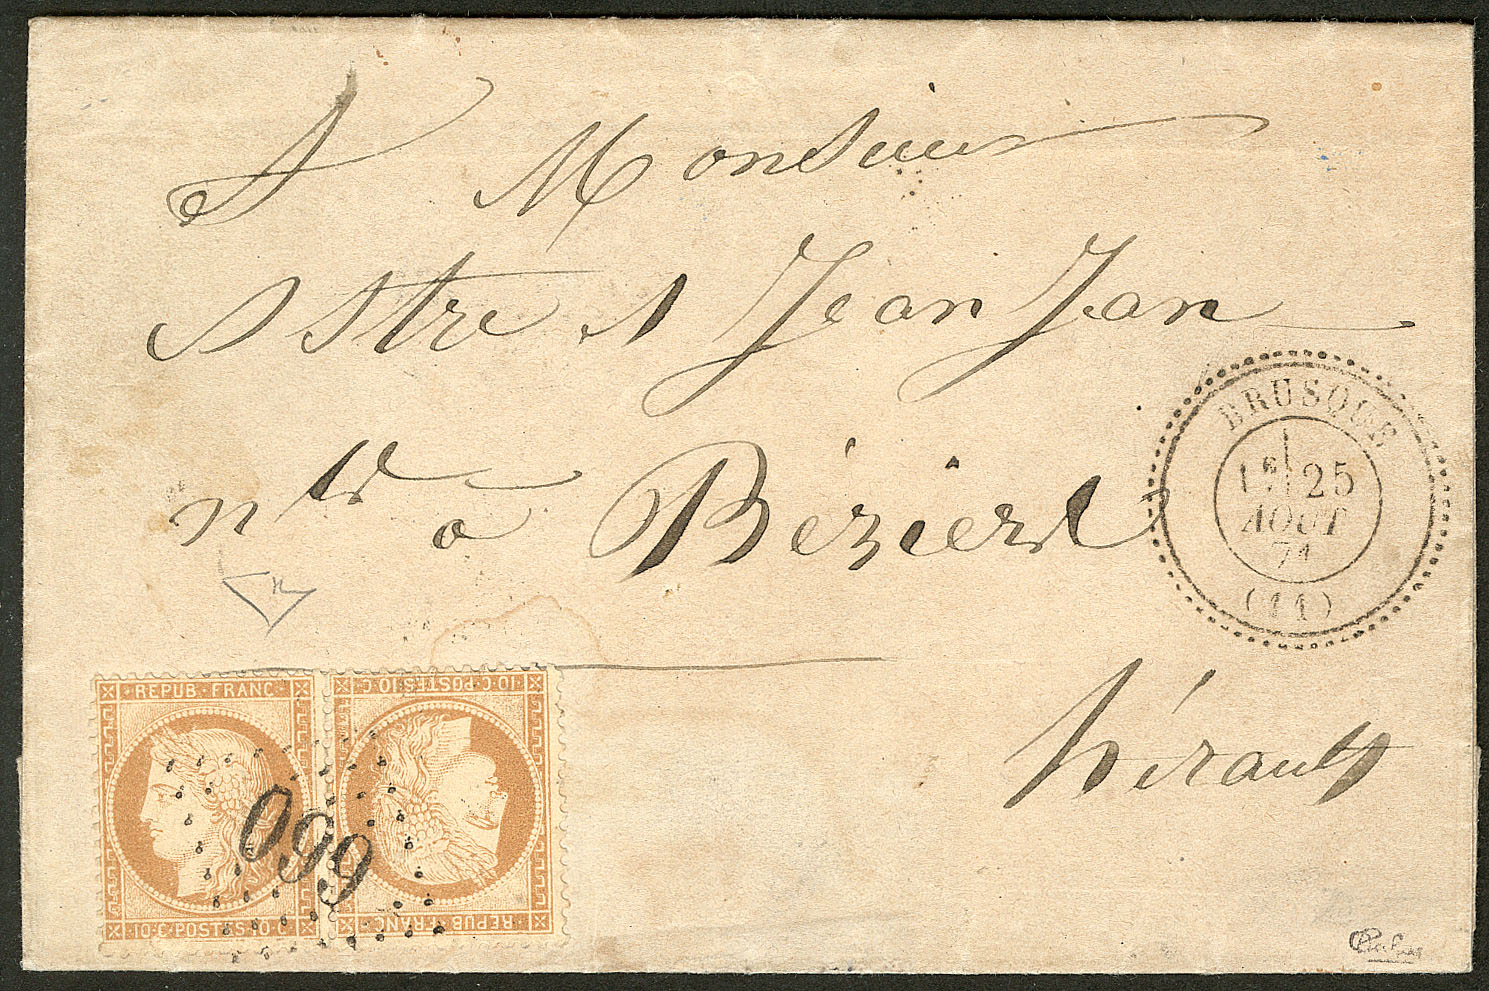 A Monsieur
Astre Jean Jan
nt à Béziers
hérault
BRUSQUE
1E 25
AOUT
71
(11)
REPUB·FRANC·
10·C·POSTES·10·C·
10·C·POSTES·10·C·
REPUB·FRANC·
660